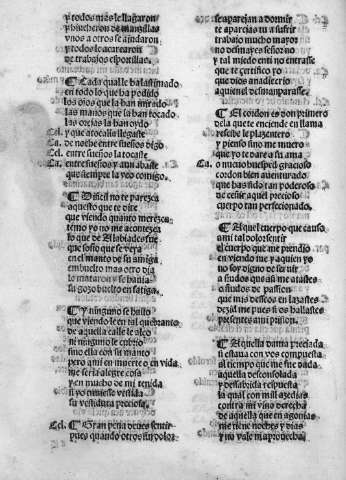 y todos mas le llagaron
y hincheron de manzillas
vnos a otros se ayudaron
y todos le acarrearon
de trabajos esportillas.
¶ Cada qual le ha lastimado
en todo lo que ha podido
los ojos que la han mirado
las manos que la han tocado
las orejas la han oydo
Cel. y que a tocalla llegaste
Ca. de noche entre sueños digo
Cel. entre sueños la tocaste
Ca. entre sueños y aun abaste
que siempre la veo comigo.
¶ Dificil no te parezca
aquesto que te dixe
que viendo quanto merezca
temo yo no me acontezca
lo que de Alcibiades fue
que soño que se veya
en el manto de su amiga
embuelto mas otro dia
lo mataron
su gozo buelto en fatiga.
¶ Y ninguno se hallo
que viendole en tal quebranto
de aquella calle lo alço
ni ninguno le cubrio
sino ella con su manto
pero a mi en muerte o en vida
me seria alegre cosa
y en mucho de mi tenida
si yo vuiesse vestida
su vestidura preciosa.
Cel. ¶ Gran pena deues sentir
pues quando otros sin dolor
se aparejan a dormir
te aparejas tu a sufrir
trabajo mucho mayor
no desmayes señor no
y tal miedo en ti no entrasse
que te certifico yo
que dios a nadie crio
a quien el desmamparasse.
¶ El cordon es don primero
de la que te enciende en llama
rescibe le plazentero
y pienso sino me muero
que yo te dare a su ama
Ca. o nueuo huesped gracioso
cordon bien auenturado
que has sido tan poderoso
de ceñir aquel precioso
cuerpo tan perfecionado.
¶ Aquel cuerpo que causo
a mi tal dolor sentir
el cuerpo que me prendio
en viendo me y a quien yo
no soy digno de seruir
a ñudos que assi me atastes
o ñudos de passion
que mis desseos enlazastes
dezid me pues si os hallastes
presentes a mi prision.
¶ Aquella dama preciada
si estaua con vos compuesta
al tiempo que me fue dada
aquella desconsolada
y dessabrida respuesta
la qual con mill azedias
contra mi vino derecha
de aquella que en agonias
me tiene noches y dias
y no vale ni aprouecha